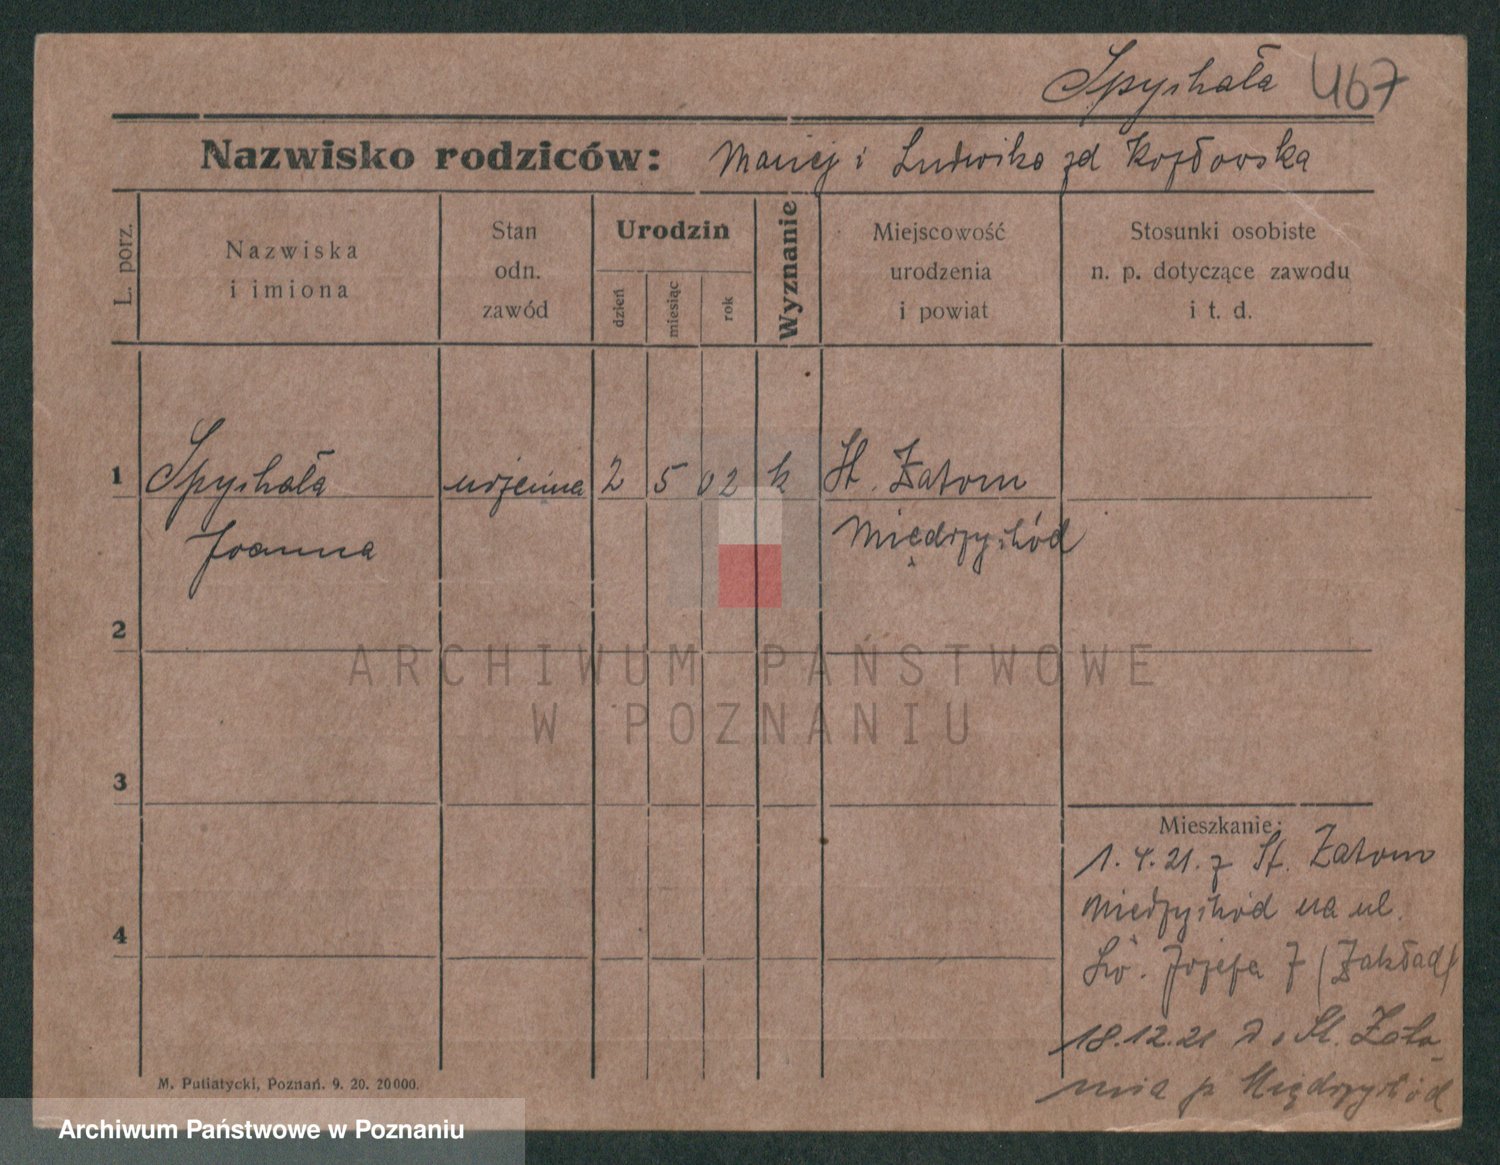 Spychała 467
Nazwisko rodziców: Maciej i Ludwika zd Kozłowska
L. porz.
Nazwiska
i imiona
Stan
odn.
zawód
Urodzin
dzień
miesiąc
rok
Wyznanie
Miejscowość
urodzenia
i powiat
Stosunki osobiste
n. p. dotyczące zawodu
i t. d.
1 Spychała uczenna 2 5 02 k St. Zatom
Joanna Międzychód
2
ARCHIWUM PAŃSTWOWE
W POZNANIU
3
Mieszkanie:
1.4.21. z St. Zatom
Międzychód na ul.
4
Św. Józefa 7 (Zakład)
18.12.21 do St. Zato-
mia p Międzychód
M. Putiatycki, Poznań. 9. 20. 20000.
Archiwum Państwowe w Poznaniu